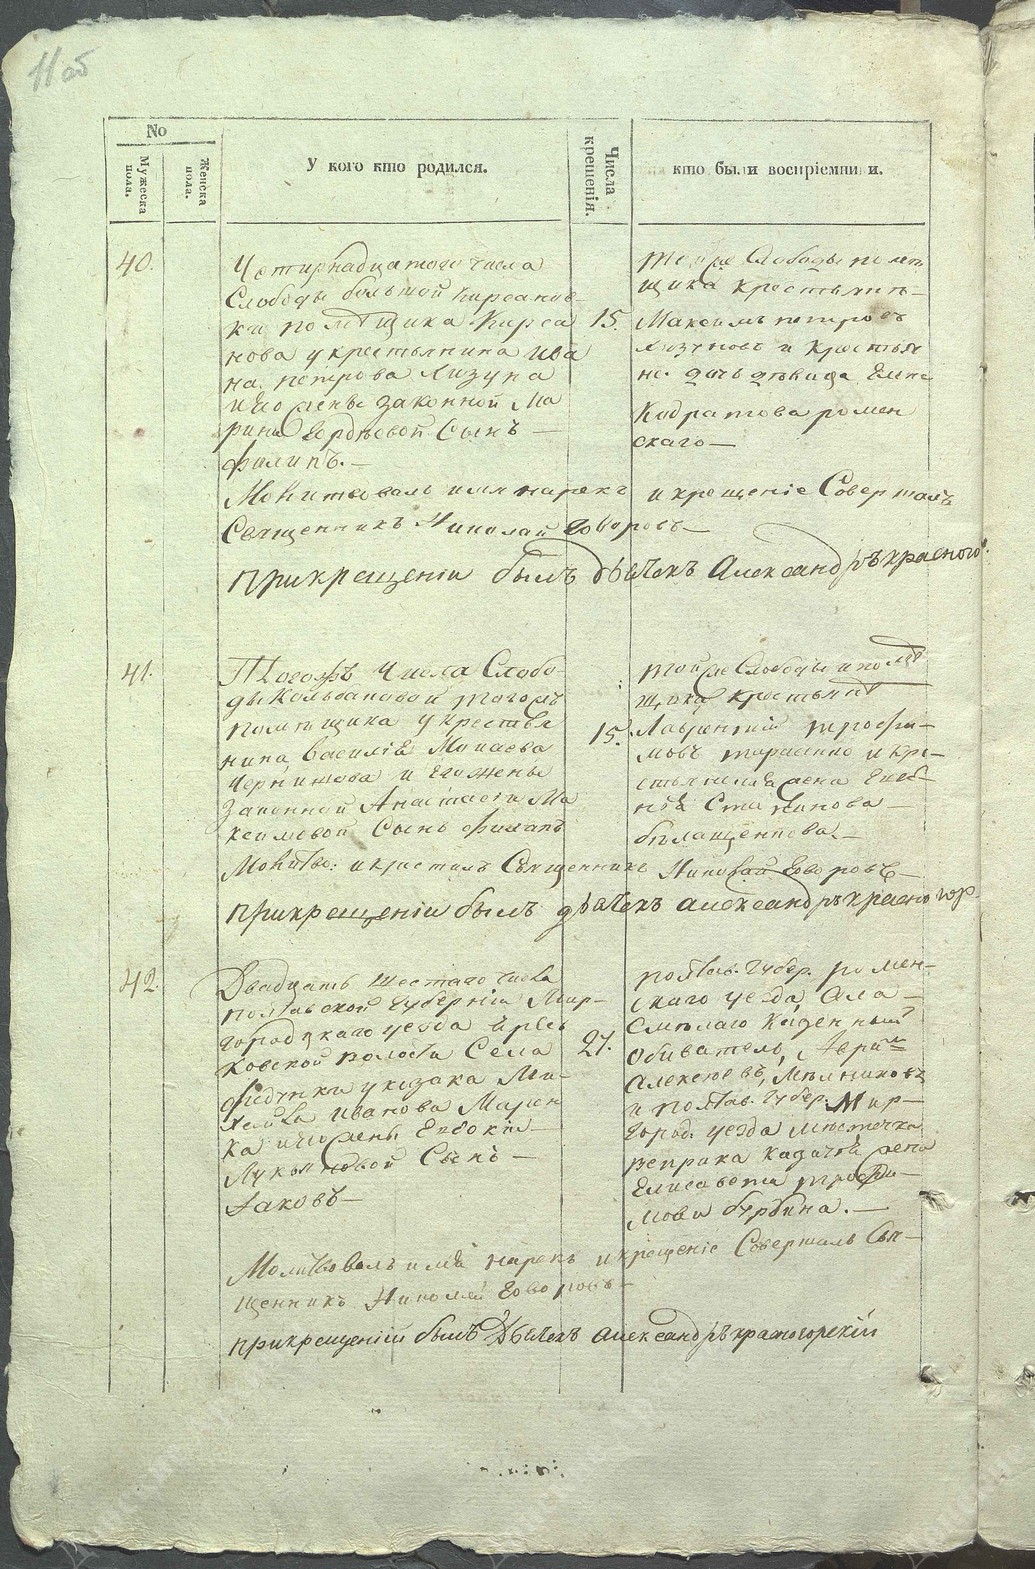 11об
No
Мужеска пола.
Женска пола.
У кого кто родился.
Числа крещенія.
кто были воспріемники.
40.
Четирнадцатого числа
Слободы большой Кирсанов-
ки помѣщика Кирса
нова у крестьянина Ива
на петрова Лизуна
и его жены законной Ма
рины Гордѣевой Сынъ —
филипъ. —
15.
тойже Слободы помѣ
щика крестьянинъ
Максимъ петровъ
Лизуновъ и крестьян
дѣвица Елена
Кодратова ромен
скаго —
Молитвовалъ имя нарекъ и крещеніе Совершалъ
Священникъ Николай Говоровъ —
прикрещеніи былъ дьячекъ Александръ красного
41.
Тогожъ Числа Слобо-
помѣщика у крестья
нина Василія Моисѣева
Чернишова и его жены
Законной Анастасіи Ма
ксимовой Сынъ филипъ
15.
тойже Слободы и помѣ
щика крестьянинъ
Лаврентій трофи-
мовъ тарасенко и кре-
жена Евге-
нія
бѣлащенкова. —
Молитво: и крестилъ Священникъ Николай Говоровъ —
прикрещеніи былъ дьячекъ александръ красногор
42.
Двадцать шестаго числа
полтавской Губерніи Мир-
городскаго уезда
ковской волости Села
у козака Ми-
Иванова Марен
ка и его жены Евдокіи —
Лукояновой Сынъ —
Іаковъ —
27.
полтав. Губер. ромен-
скаго уезда
Смѣлаго Казенный
Обиватель,
Алексѣевъ, Мѣлниковъ
и полтав. Губер. Мир-
город. уезда мѣстечка
Веприка Козачья жена
Елисавета трофи-
мова бурбина. —
Молитвовалъ имя нарекъ и крещеніе Совершалъ Свя-
щенникъ Николай Говоровъ —
прикрещеніи былъ Дьячекъ александръ красногорскій